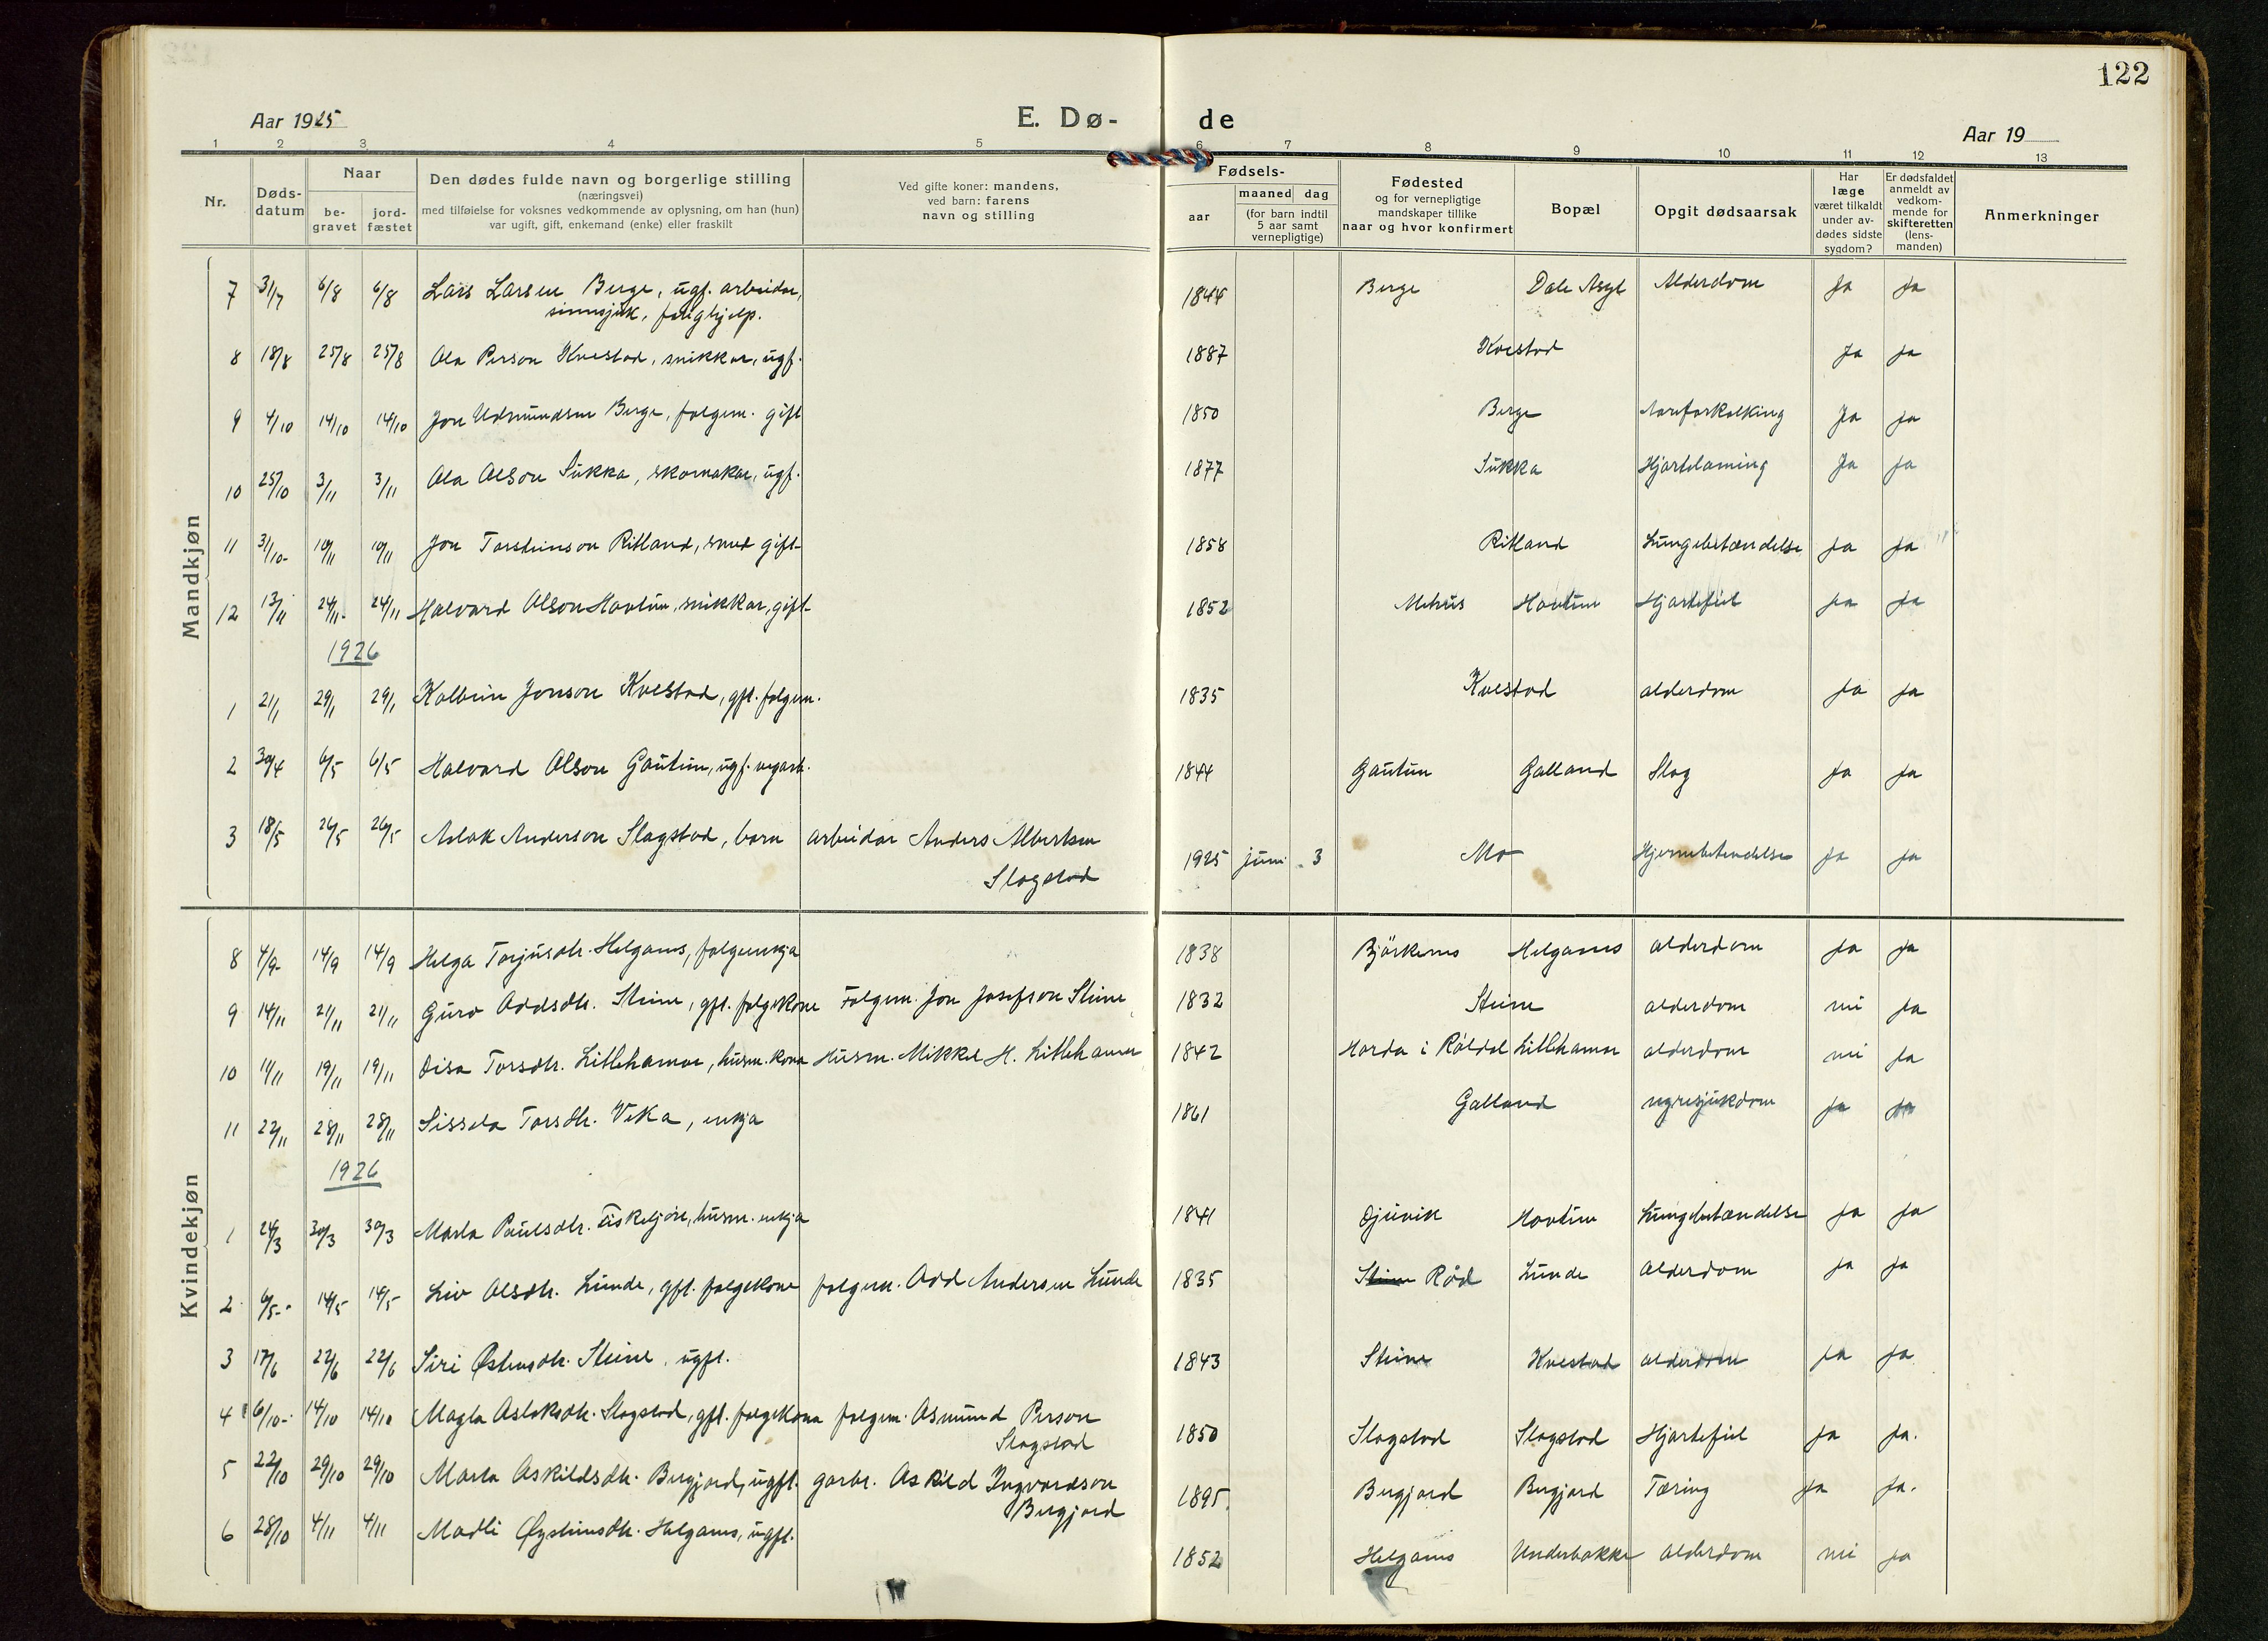 122
Aar 1925
E. Dø-
de
Aar 19
1 2 3 4 5 6 7 8 9 10 11 12 13
Nr.
Døds-
datum
Naar
be-
gravet
jord-
fæstet
Den dødes fulde navn og borgerlige stilling
(næringsvei)
med tilføielse for voksnes vedkommende av oplysning, om han (hun)
var ugift, gift, enkemand (enke) eller fraskilt
Ved gifte koner: mandens,
ved barn: farens
navn og stilling
Fødsels-
aar
maaned dag
(for barn indtil
5 aar samt
vernepligtige)
Fødested
og for vernepligtige
mandskaper tillike
naar og hvor konfirmert
Bopæl
Opgit dødsaarsak
Har
læge
været tilkaldt
under av-
dødes sidste
sygdom?
Er dødsfaldet
anmeldt av
vedkom-
mende for
skifteretten
(lens-
manden)
Anmerkninger
Mandkjøn
7 31/7 6/8 6/8 Lars Larsen Berge, ugf. arbeidar, 1844 Berge Dale Asyl Alderdom Ja Ja
sinnsjuk, forighjelp.
8 18/8 25/8 25/8 Ola Person Kvestad, snikkar, ugf. 1887 Kvestad Ja Ja
9 4/10 14/10 14/10 Jon Udmundsen Berge, folgem. gift 1850 Berge Aareforkalking Ja Ja
10 25/10 3/11 3/11 Ola Olson Sukka, skomakar, ugf. 1877 Sukka Hjartelaming Ja Ja
11 31/10 10/11 10/11 Jon Torsteinson Ritland, smed gift 1858 Ritland Lungebetændelse Ja Ja
12 13/11 24/11 24/11 Halvard Olson Hovtun, snikkar, gift 1852 Mehus Hovtun Hjartefeil Ja Ja
1926
1 21/1 29/1 29/1 Kolbein Jonson Kvestad, gft. folgem. 1835 Kvestad alderdom Ja Ja
2 30/4 6/5 6/5 Halvard Olson Gautun, ugf. vegarb. 1844 Gautun Galland Slag Ja Ja
3 18/5 26/5 26/5 Aslak Anderson Slagstad, barn arbeidar Anders Albertsen 1925 juni 3 Mo Hjernebetendelse Ja Ja
Slagstad
Kvindekjøn
8 4/9 14/9 14/9 Helga Torjusdtr. Helganes, folgeenkja 1838 Bjørkenes Helganes alderdom Ja Ja
9 14/11 21/11 21/11 Guro Oddsdtr. Steine, gft. folgekone Folgem. Jon Josefson Steine 1832 Steine alderdom nei Ja
10 11/11 19/11 19/11 Disa Torsdtr. Litlehamar, husm. kona Husm. Mikkel H. Litlehamar 1842 Horda i Røldal Litlehamar alderdom nei Ja
11 22/11 28/11 28/11 Sissela Torsdtr. Veka, enkja 1861 Galland nyresjukdom Ja Ja
1926
1 24/3 30/3 30/3 Marta Paulsdtr. Fisketjøn, husm. enkja 1841 Djuvik Hovtun Lungebetændelse Ja Ja
2 6/5 14/5 14/5 Liv Olsdtr. Lunde, gft. folgekone folgem. Odd Andersen Lunde 1835 Steine Rød Lunde Alderdom Ja Ja
3 17/6 22/6 22/6 Siri Østensdtr. Steine, ugft. 1843 Steine Kvestad alderdom Ja Ja
4 6/10 14/10 14/10 Magla Aslaksdtr. Slagstad, gft. folgekona folgem. Asmund Person 1850 Slagstad Slagstad Hjartefeil Ja Ja.
Slagstad
5 22/10 29/10 29/10 Marta Askildsdtr. Bergjord, ugft. garbr. Askild Ingvardson 1895. Bergjord Bergjord Tæring Ja Ja.
Bergjord
6 28/10 4/11 4/11 Madli Øysteinsdtr. Helganes, ugft. 1852 Helganes Underbakke alderdom nei Ja